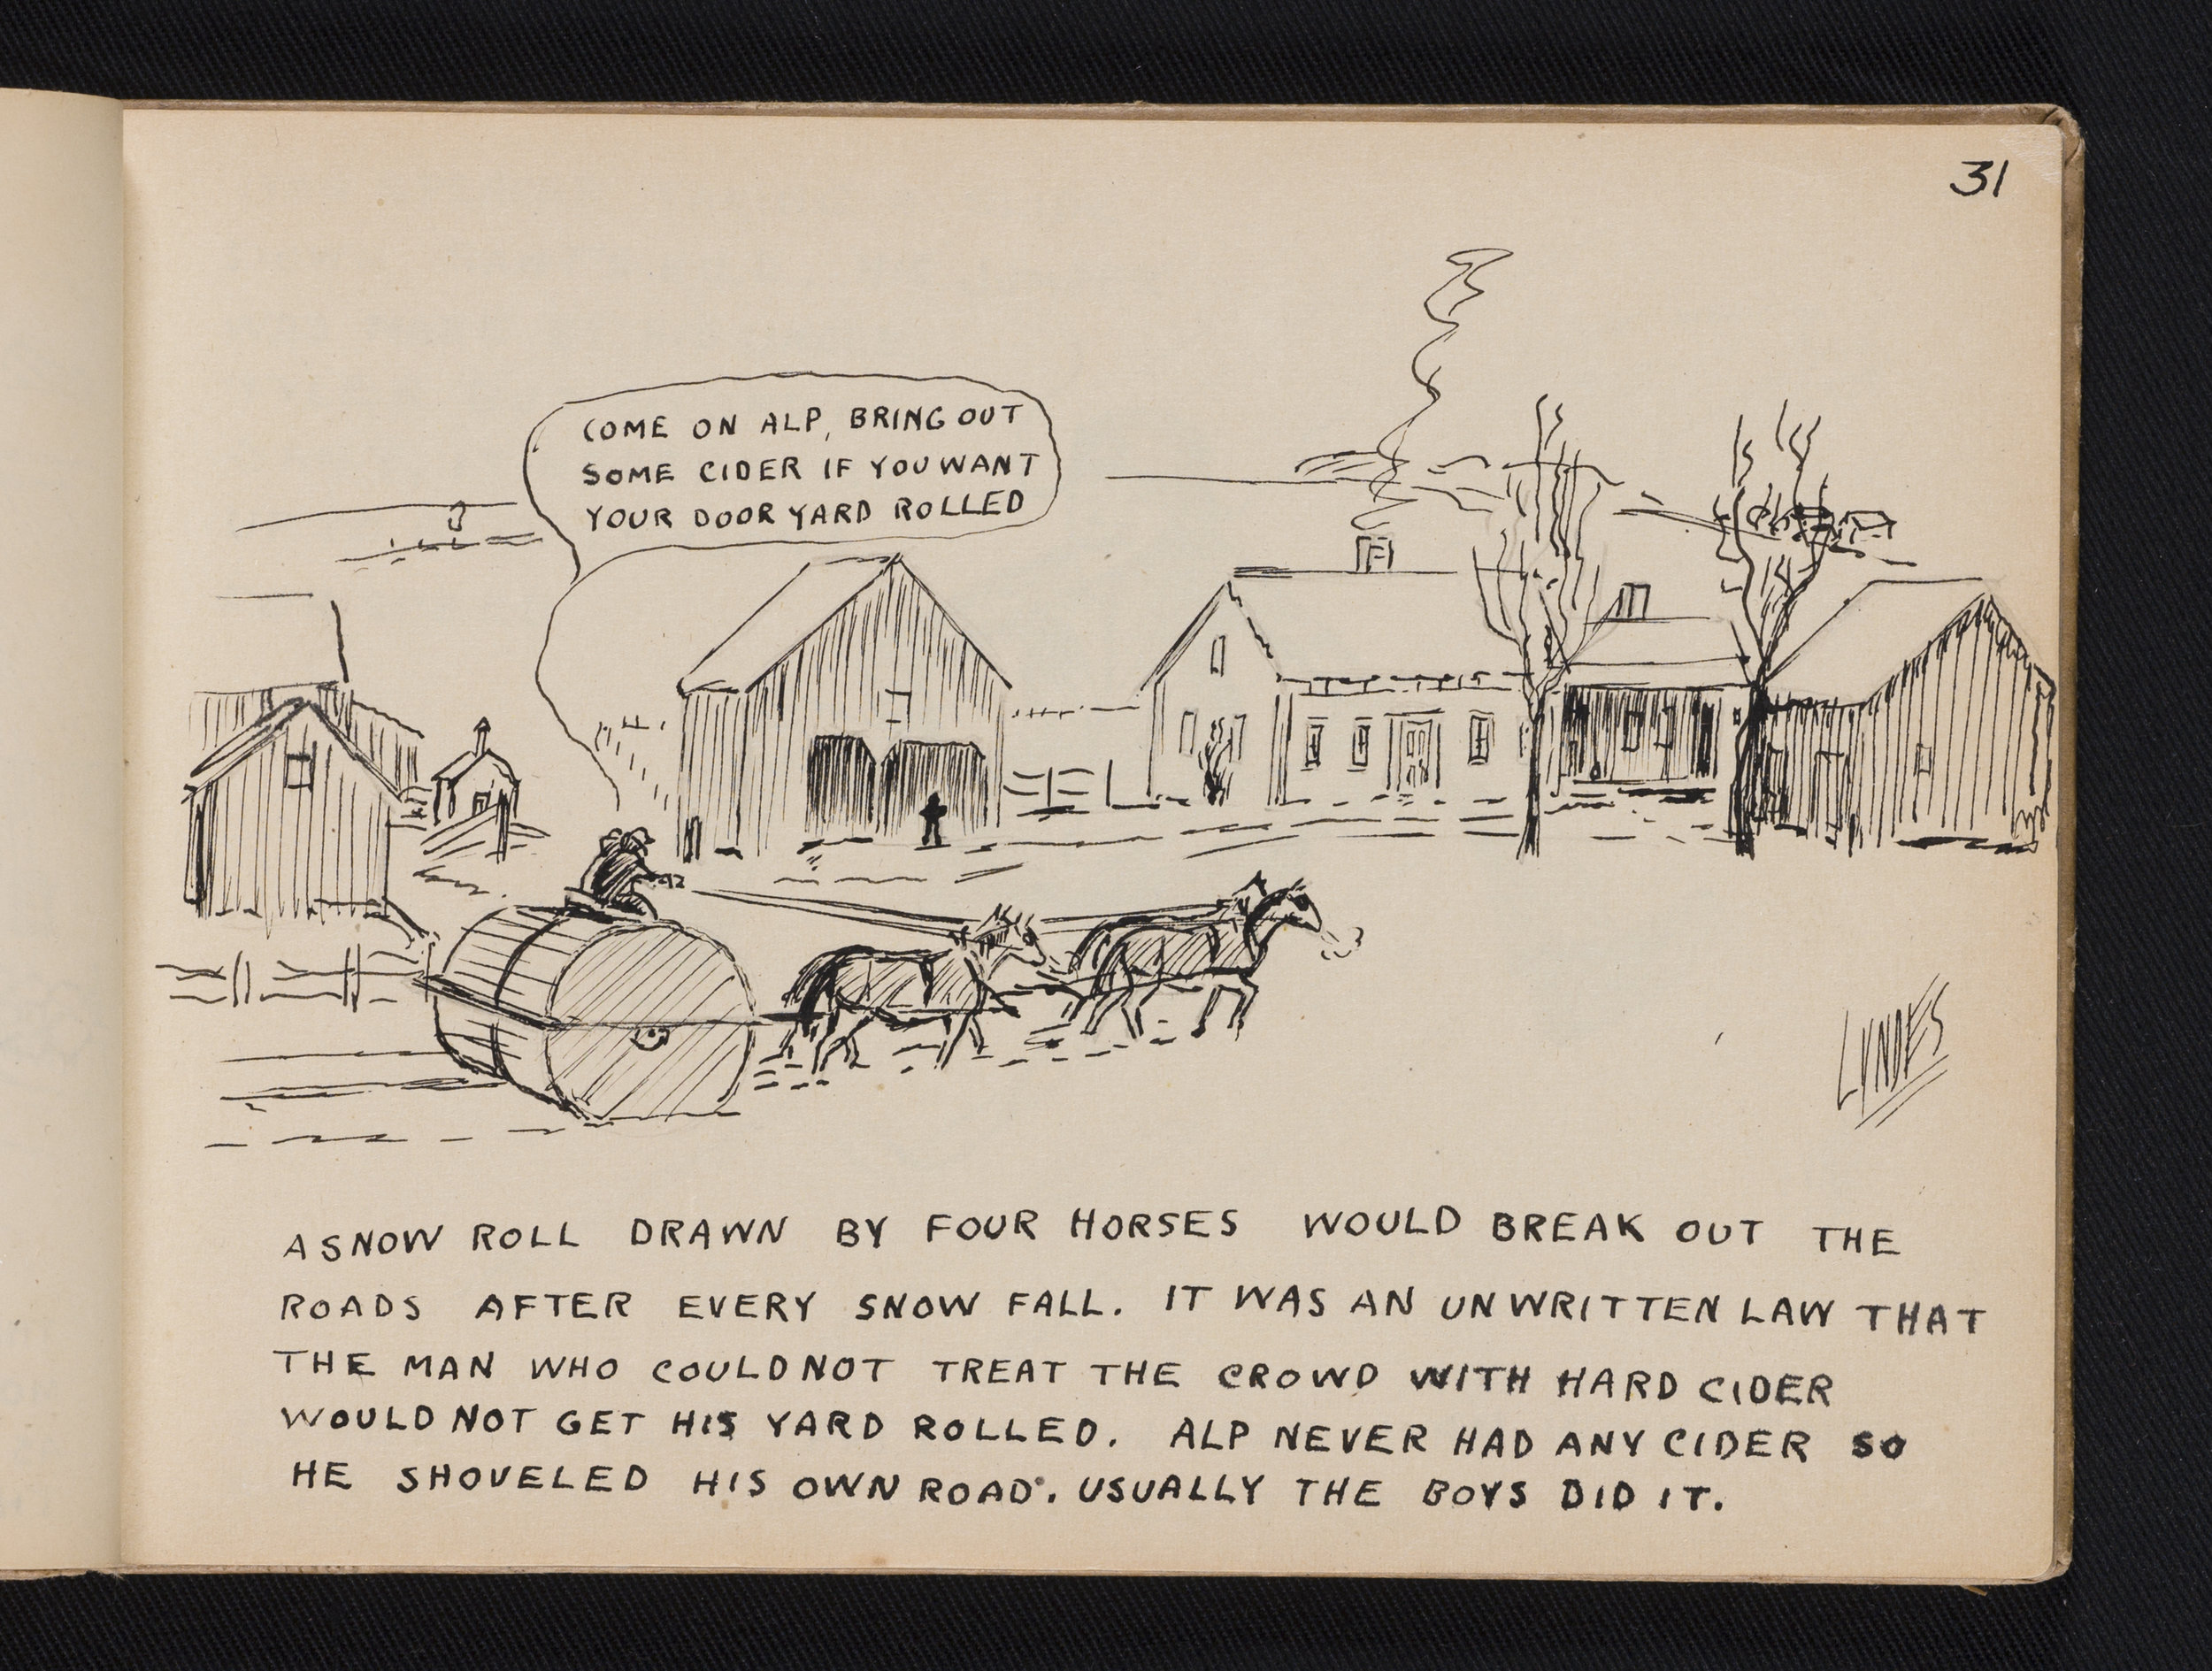 31
COME ON ALP, BRING OUT
SOME CIDER IF YOU WANT
YOUR DOOR YARD ROLLED
LYNDES
A SNOW ROLL DRAWN BY FOUR HORSES WOULD BREAK OUT THE
ROADS AFTER EVERY SNOW FALL. IT WAS AN UNWRITTEN LAW THAT
THE MAN WHO COULD NOT TREAT THE CROWD WITH HARD CIDER
WOULD NOT GET HIS YARD ROLLED. ALP NEVER HAD ANY CIDER SO
HE SHOVELED HIS OWN ROAD. USUALLY THE BOYS DID IT.